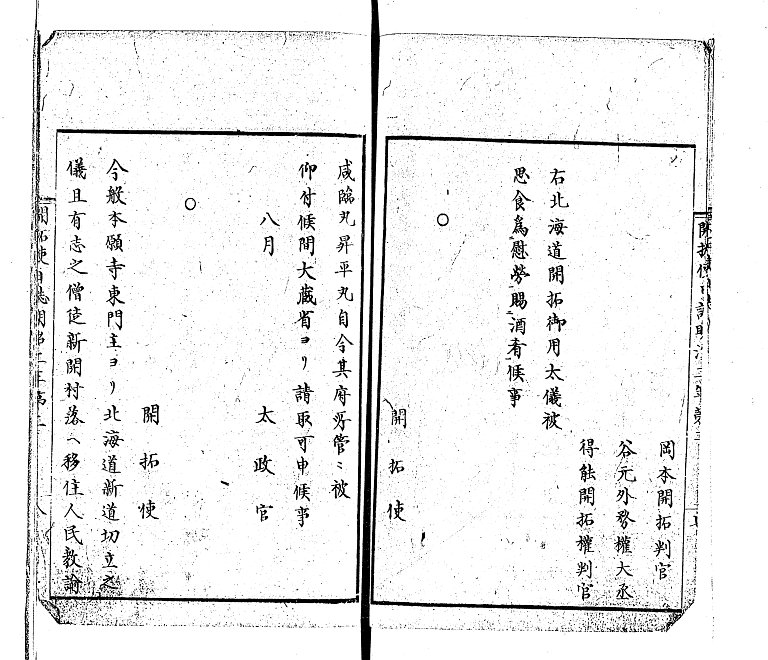 岡本開拓判官
谷元外務權大丞
得能開拓權判官
右北海道開拓御用太儀被
思食為慰勞賜酒肴候事
○
開拓使
咸臨丸昇平丸自今其府所管ニ被
仰付候間大蔵省ヨリ請取可申候事
八月
太政官
○
開拓使
今般本願寺東門主ヨリ北海道新道切立之
儀且有志之僧徒新開村落ヘ移住人民教諭